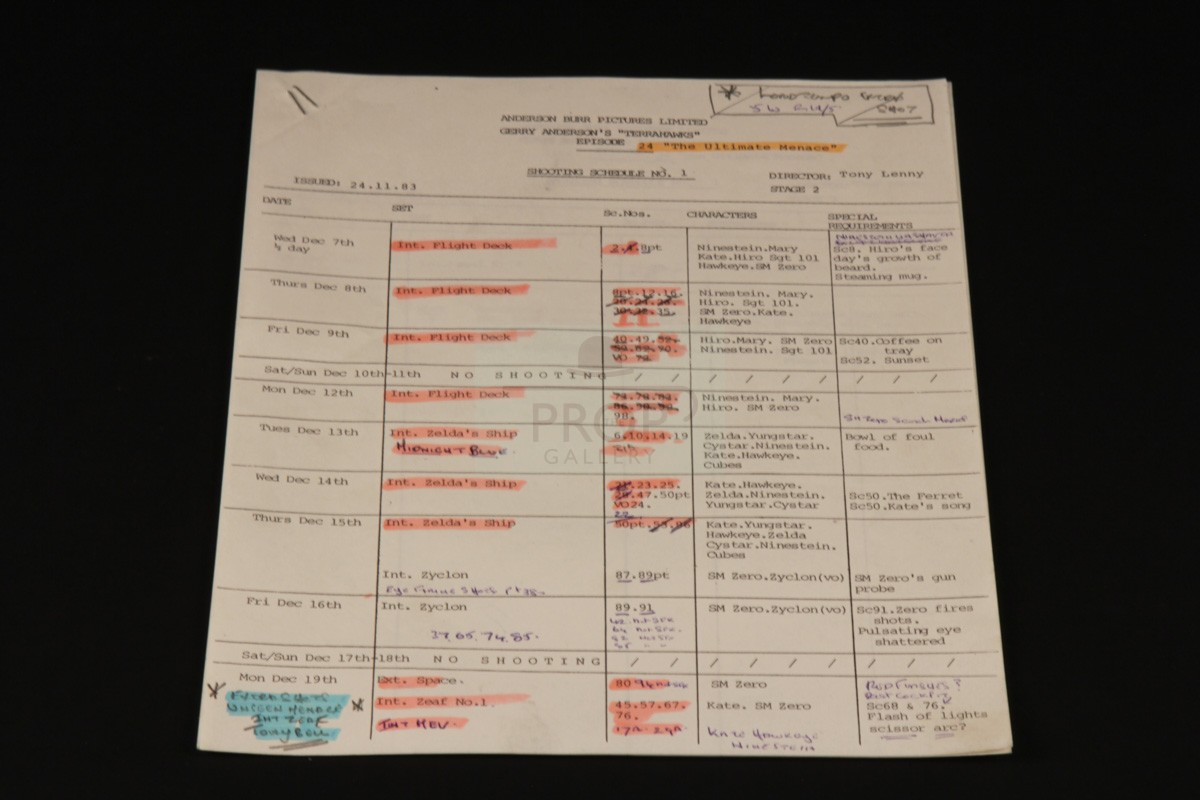 ANDERSON BURR PICTURES LIMITED
GERRY ANDERSON'S "TERRAHAWKS"
EPISODE 24 "The Ultimate Menace"
SHOOTING SCHEDULE NO. 1
DIRECTOR: Tony Lenny
ISSUED: 24.11.83
STAGE 2
DATE SET Sc.Nos. CHARACTERS SPECIAL REQUIREMENTS
Wed Dec 7th Int. Flight Deck 8pt Ninestein.Mary
½ day Kate.Hiro Sgt 101 Sc8. Hiro's face
Hawkeye.SM Zero day's growth of
beard.
Steaming mug.
Thurs Dec 8th Int. Flight Deck 8pt.12.16. Ninestein. Mary.
Hiro. Sgt 101.
SM Zero.Kate.
Hawkeye
Fri Dec 9th Int. Flight Deck 40.49.52. Hiro.Mary. SM Zero Sc40.Coffee on
Ninestein. Sgt 101 tray
VO 72. Sc52. Sunset
Sat/Sun Dec 10th-11th NO SHOOTING / / / / / / / / /
Mon Dec 12th Int. Flight Deck Ninestein. Mary.
98. Hiro. SM Zero
Tues Dec 13th Int. Zelda's Ship 6.10.14.19 Zelda.Yungstar. Bowl of foul
MIDNIGHT BLUE. Cystar.Ninestein. food.
Kate.Hawkeye.
Cubes
Wed Dec 14th Int. Zelda's Ship 23.25. Kate.Hawkeye.
47.50pt Zelda.Ninestein. Sc50.The Ferret
VO24. Yungstar.Cystar Sc50.Kate's song
22
Thurs Dec 15th Int. Zelda's Ship 50pt. Kate.Yungstar.
Hawkeye.Zelda
Cystar.Ninestein.
Cubes
Int. Zyclon 87.89pt SM Zero.Zyclon(vo) SM Zero's gun
probe
Fri Dec 16th Int. Zyclon 89.91 SM Zero.Zyclon(vo) Sc91.Zero fires
shots.
37.65.74.85. Pulsating eye
shattered
Sat/Sun Dec 17th-18th NO SHOOTING / / / / / / / / /
Mon Dec 19th Ext. Space. 80 SM Zero
Int. Zeaf No.1. 45.57.67. Kate. SM Zero Sc68 & 76.
76. Flash of lights
INT HEV. 17A. 29A. scissor arc?
Kate Hawkeye
NINESTEIN
PROP
GALLERY